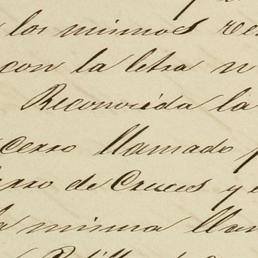 los mismos
con la letra n
Reconocida la
Cerro llamado
Cerro de Cruces y
la misma